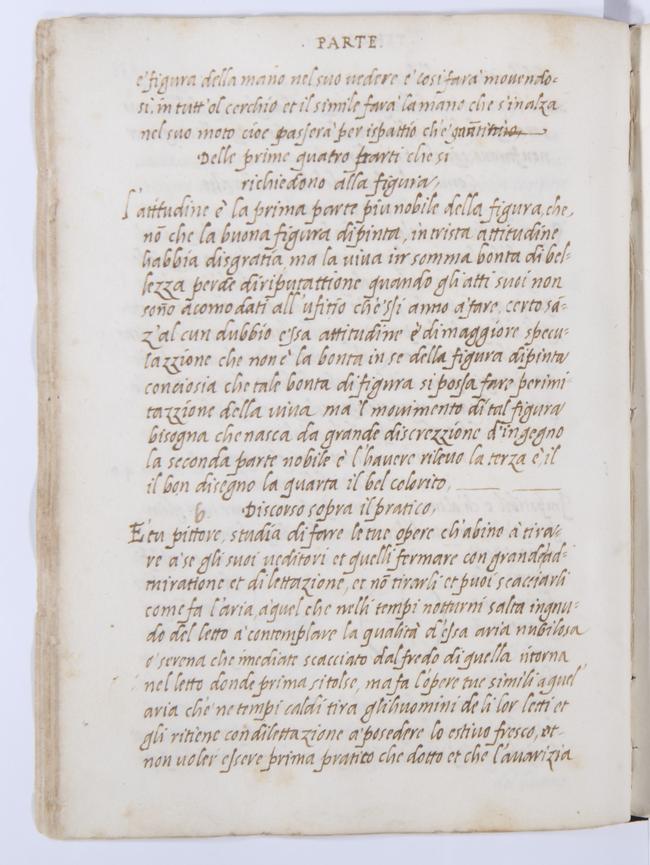 PARTE
e' figura della mano nel suo vedere e' cosi fara movendo-
si, in tutt'ol cerchio et il simile fara la mano che s'inalza
nel suo moto cioe passera per ispattio che'
Delle prime quatro parti che si
richiedono alla figura,
L'attitudine è la prima parte piu nobile della figura, che,
nō che la buona figura dipinta, in trista attitudine
habbia disgratia, ma la viva in somma bonta di bel-
lezza perde di riputattione quando gli atti suoi non
sono acomodati all' ufitio ch'essi anno a fare, certo sā-
z'al cun dubbio essa attitudine è di maggiore specu-
lazzione che non e' la bonta in se della figura dipinta
conciosia che tale bonta di figura si possa fare per imi
tazzione della viva ma 'l movimento di tal figura
bisogna che nasca da grande discrezzione d'ingegno
la seconda parte nobile è l'havere rilevo la terza è, il
il bon disegno la quarta il bel colorito,
6. Discorso sopra il pratico,
E' tu pittore, studia di fare le tue opere ch'abino à tira-
re a' se gli suoi veditori et quelli fermare con grande ad-
miratione et dilettazione, et nō tirarli et puoi scacciarli
come fa l'aria, a quel che nelli tempi notturni salta ingnu-
do del letto a' contemplare la qualità d'essa aria nubilosa
o' serena che imediate scacciato dal fredo di quella ritorna
nel letto donde prima si tolse, ma fa l'opere tue simili a quel'
aria che' ne tempi caldi tira gli huomini de li lor letti et
gli ritiene con dilettazione a' posedere lo estivo fresco, et
non voler essere prima pratico che dotto et che l'avarizia